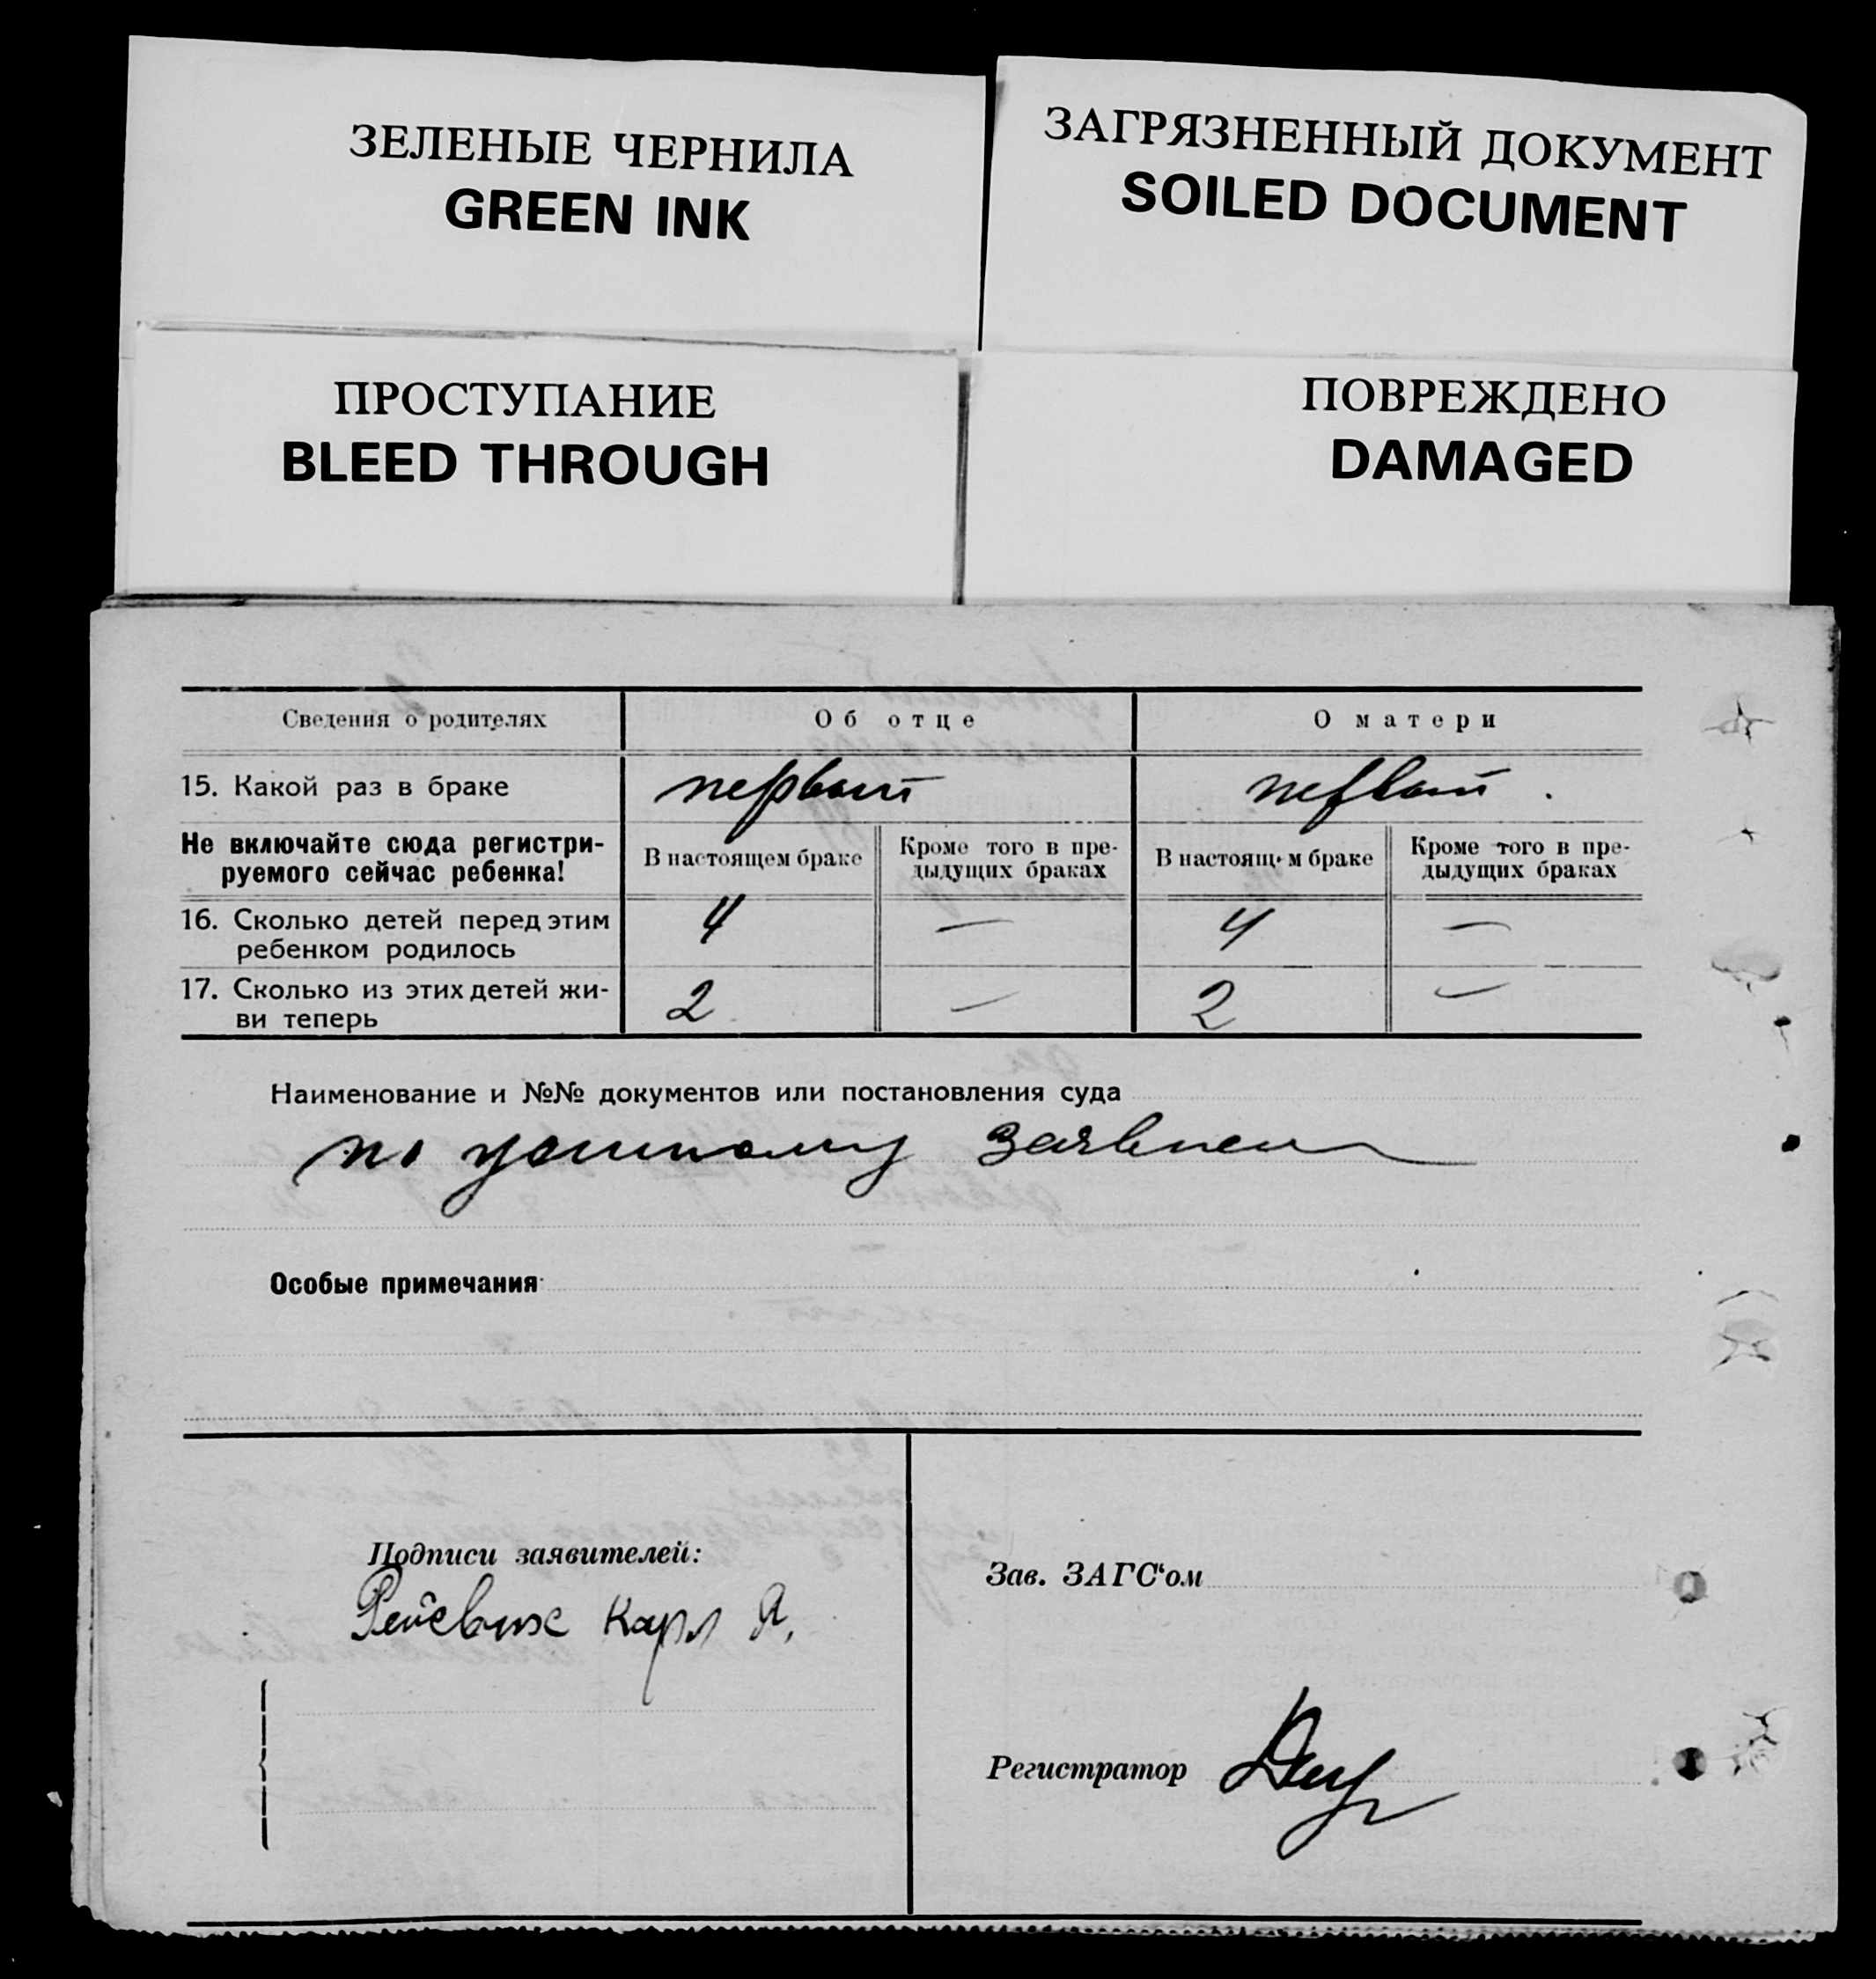 ЗЕЛЕНЫЕ ЧЕРНИЛА
GREEN INK
ЗАГРЯЗНЕННЫЙ ДОКУМЕНТ
SOILED DOCUMENT
ПРОСТУПАНИЕ
BLEED THROUGH
ПОВРЕЖДЕНО
DAMAGED
Сведения о родителях Об отце О матери
15. Какой раз в браке первый первый
Не включайте сюда регистри-
руемого сейчас ребенка!
В настоящем браке
Кроме того в пре-
дыдущих браках
В настоящем браке
Кроме того в пре-
дыдущих браках
16. Сколько детей перед этим
ребенком родилось
4 — 4 —
17. Сколько из этих детей жи-
ви теперь
2 — 2 —
Наименование и №№ документов или постановления суда
по устному заявлен
Особые примечания
Подписи заявителей:
Карл Я,
Зав. ЗАГС‘ом
Регистратор